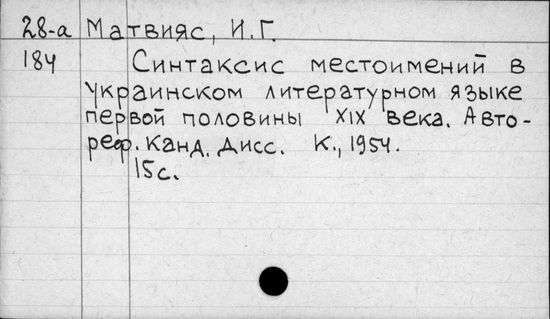 28-а Матвияс, И.Г.
184 Синтаксис местоимений в
украинском литературном языке
первой половины XIX века. Авто-
реф. канд. дисс. К., 1954.
15с.